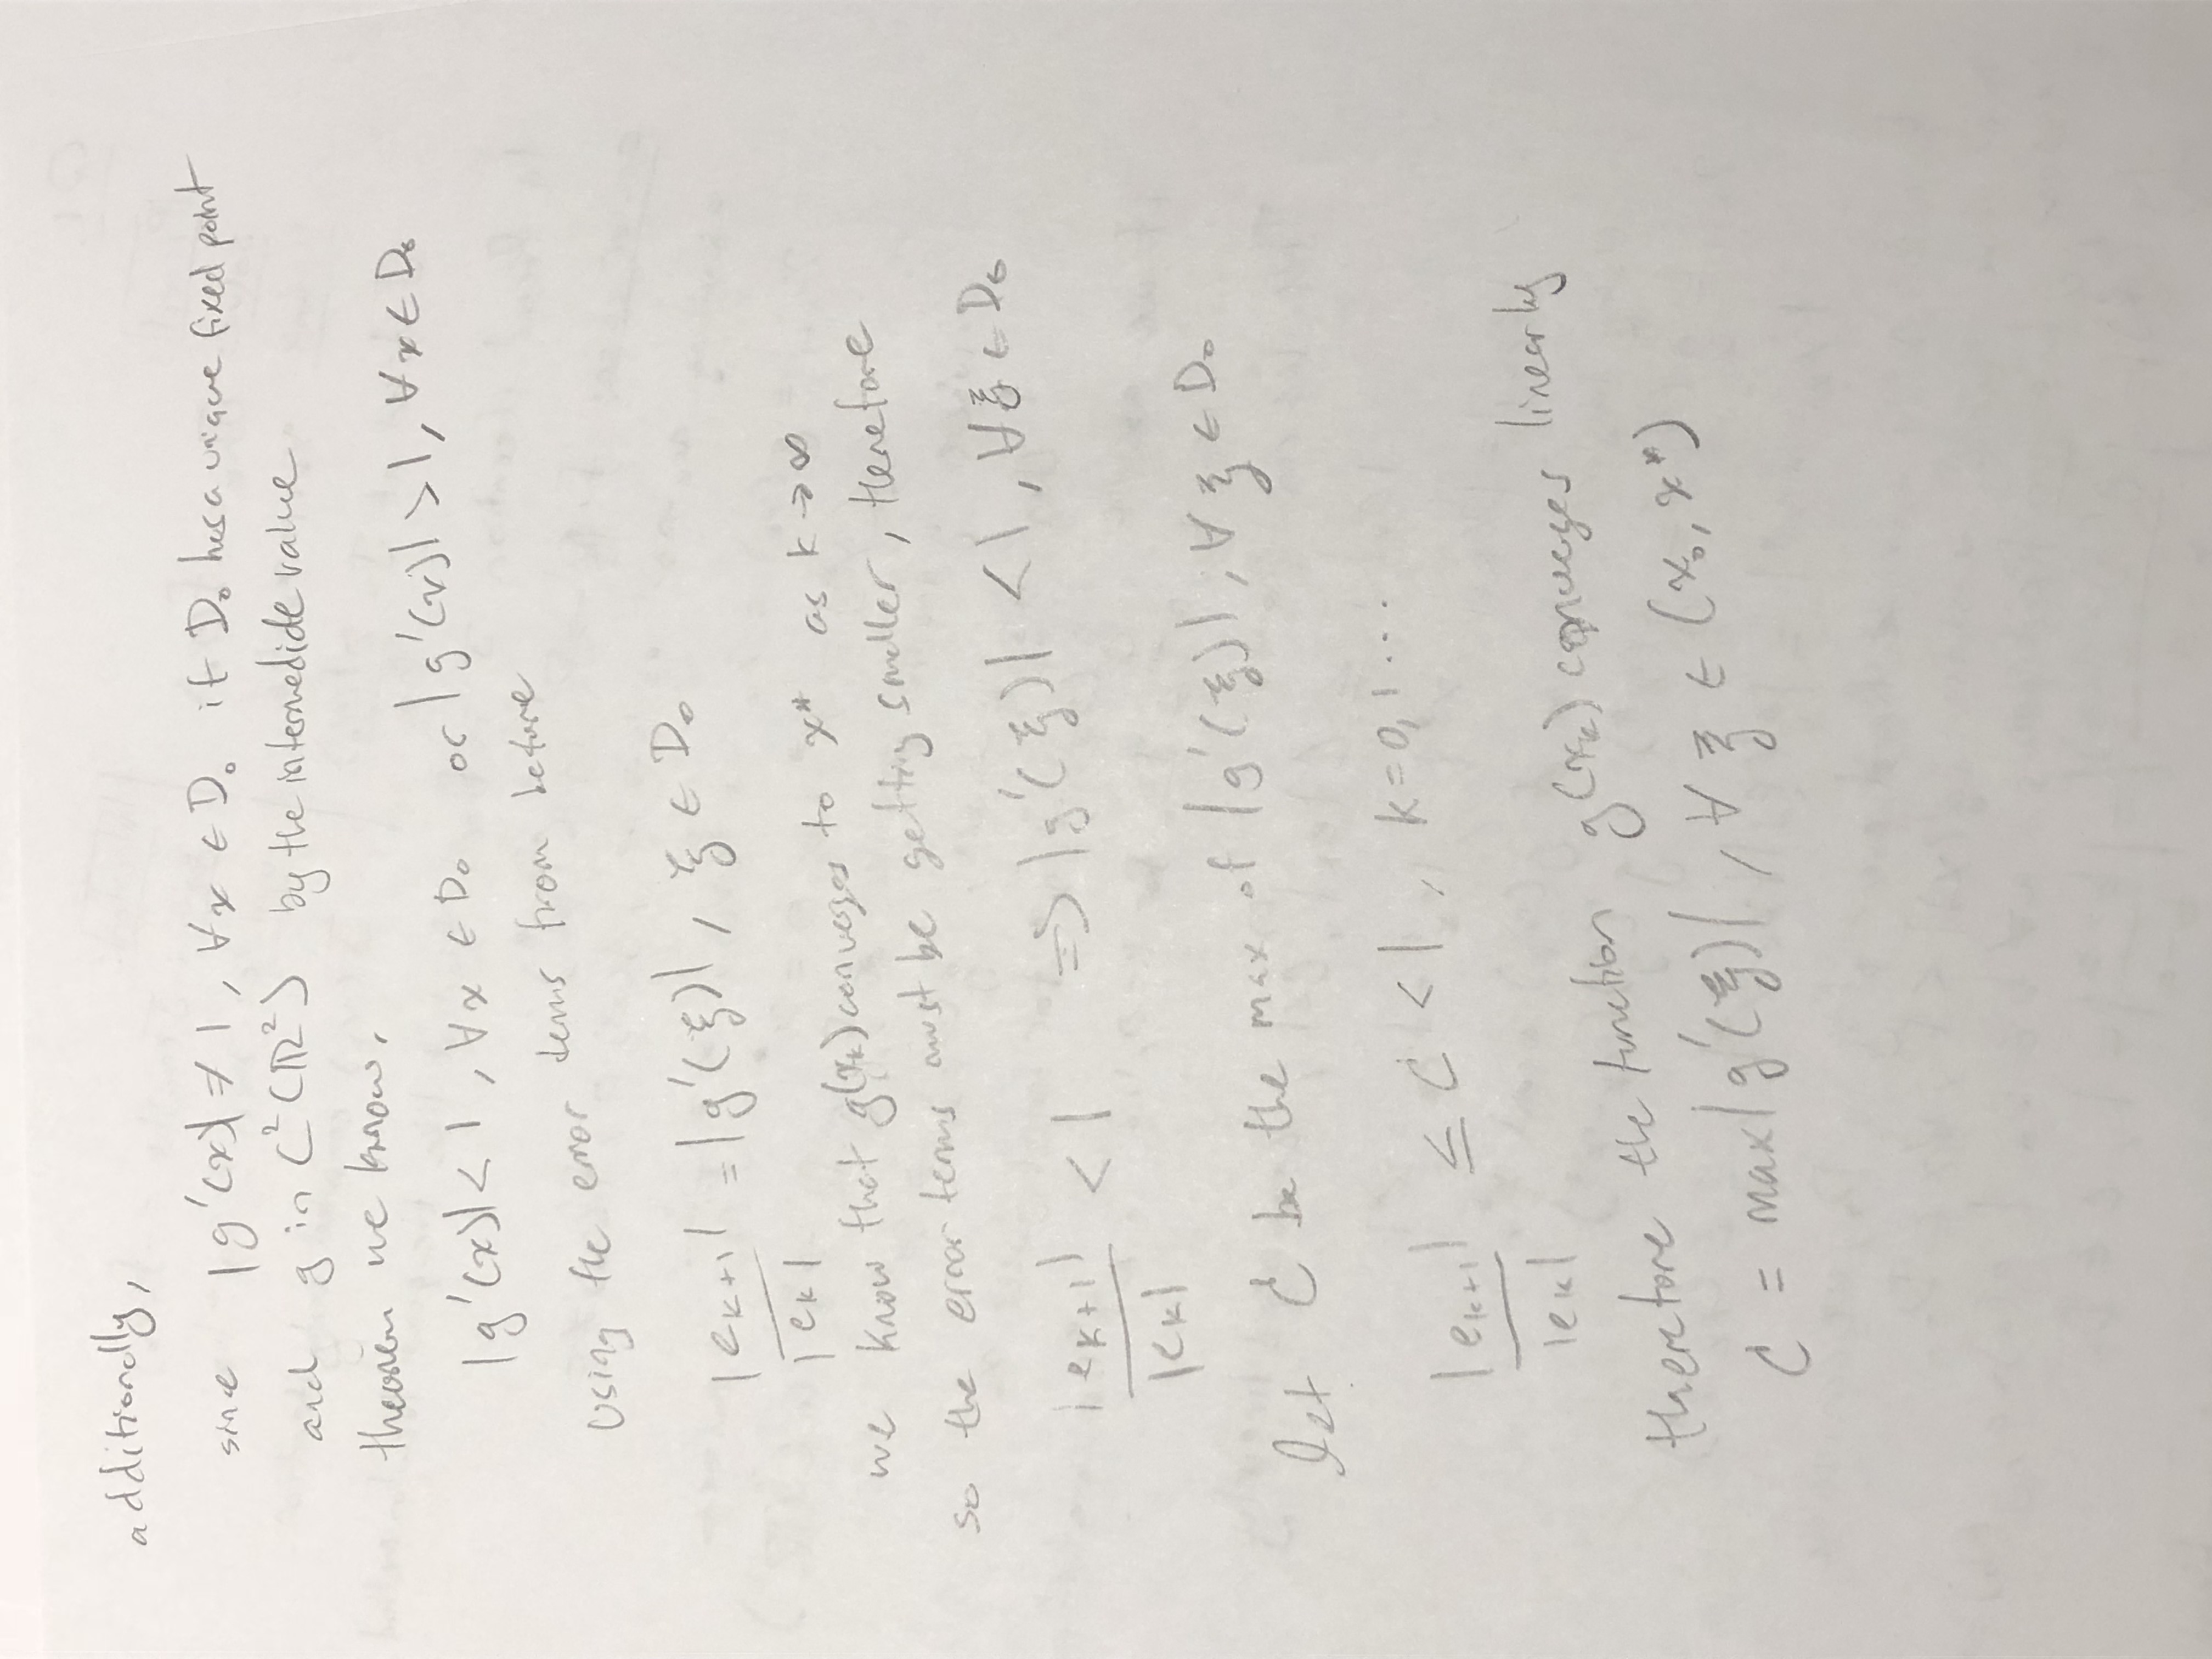 additionally,
since |g'(x)| ≠ 1, ∀x ∈ D₀ if D₀ has a unique fixed point
and g in C²(ℝ²) by the intermedide value
theorem we know,
|g'(x)| < 1, ∀x ∈ D₀ or |g'(x)| > 1, ∀x ∈ D₀
Using the error terms from before
|eₖ₊₁| / |eₖ| = |g'(ξ)|, ξ ∈ D₀
we know that g(xₖ) converges to x* as k → ∞
so the error terms must be getting smaller, therefore
|eₖ₊₁| / |eₖ| < 1 ⇒ |g'(ξ)| < 1, ∀ξ ∈ D₀
let C be the max of |g'(ξ)|, ∀ξ ∈ D₀
|eₖ₊₁| / |eₖ| ≤ C < 1, k = 0, 1 ...
therefore the function g(xₖ) converges linearly
C = max|g'(ξ)|, ∀ξ ∈ (x₀, x*)